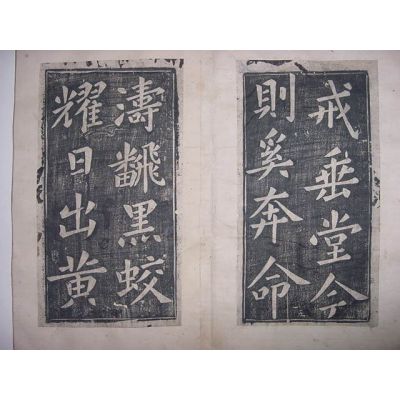 戒垂堂今
則奚奔命
濤飜黑蛟
耀日出黄